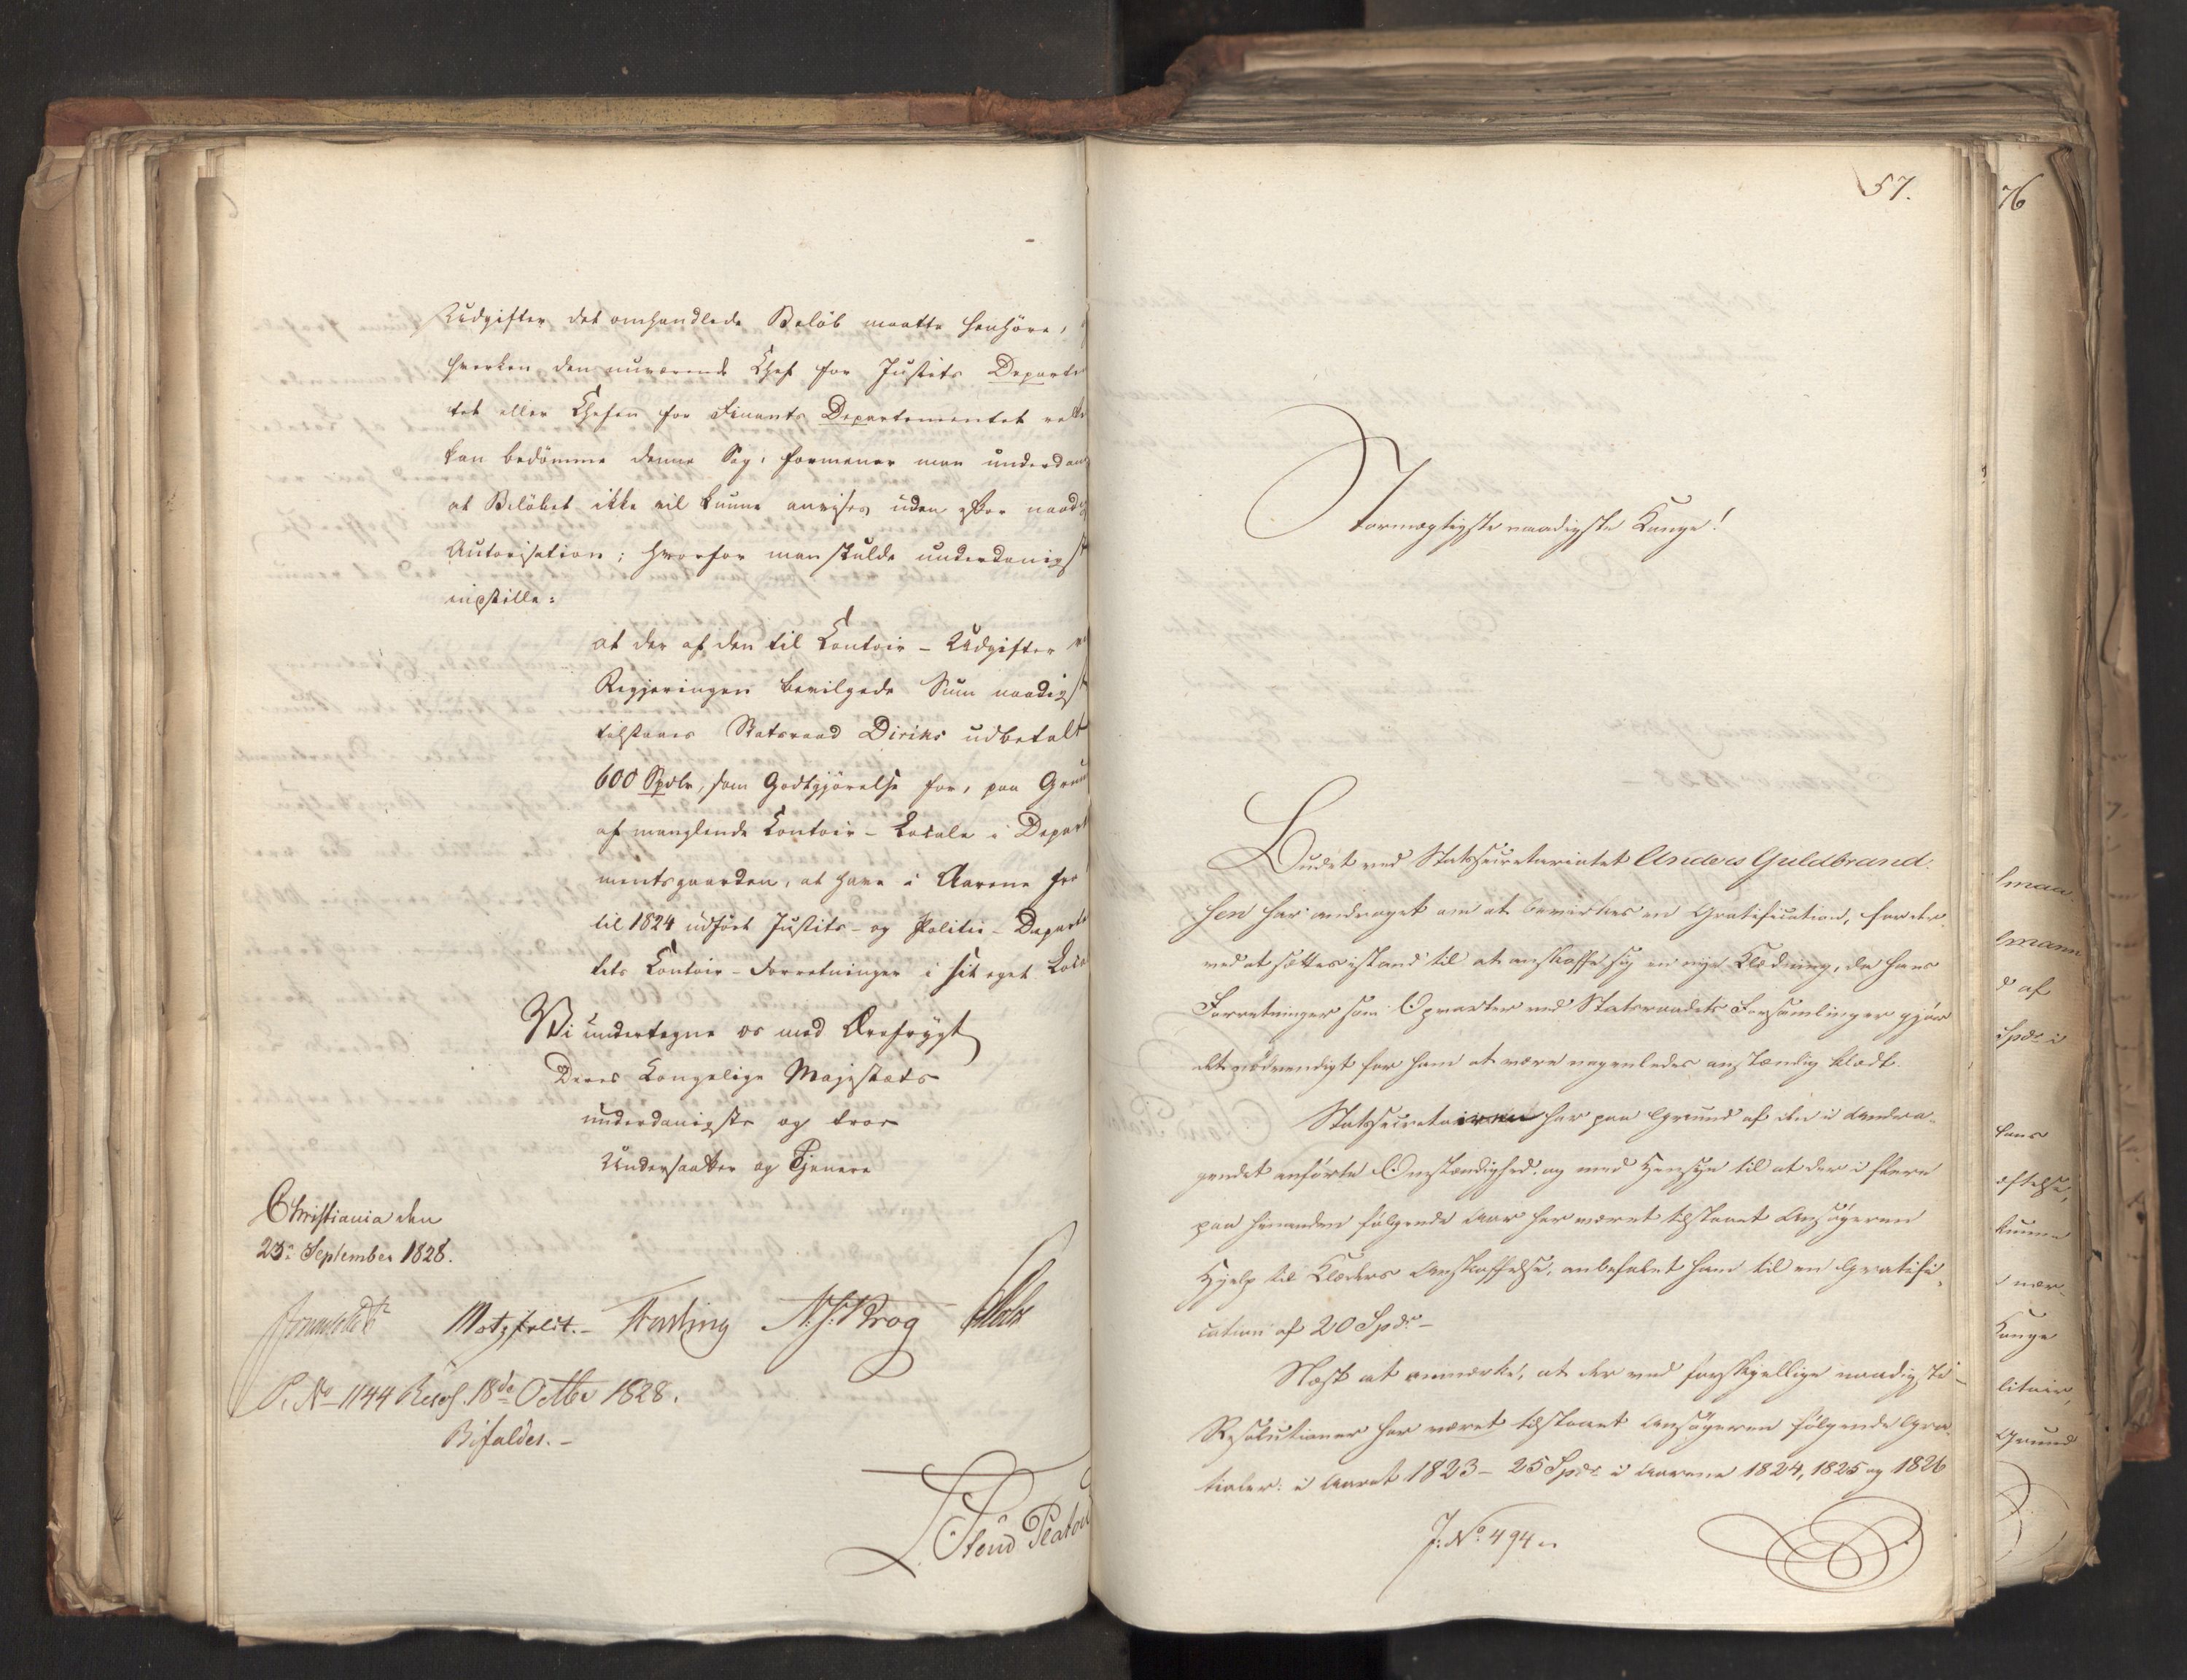 Udgifter det omhandlede Beløb maatte henhöre,
hverken den nuværende Chef for Justits Departe
tet eller Chefen for Finants Departementet rette
kan bedömme denne Sag, formener man underdan
at Belöbet ikke vil kunne anvises uden efter naadig
Autorisation; hvorfor man skulde underdanigst
indstille:
at der af den til Contoir-Udgifter ve
Regjeringen bevilgede Sum naadigst
tilstaaes Statsraad Diriks udbetalt
600 Spdlr, som Godtgjörelse for, paa Grun
af manglende Contoir-Locale i Depart
mentsgaarden, at have i Aarene fra
til 1824 udfört Justits- og Politie-Departe
tets Contoir-Forretninger i sit eget Loca
Vi undertegne os med Ærefrygt
Deres Kongelige Majestæts
underdanigste og troe
Undersaatter og Tjenere
Christiania den
23. September 1828.
Motzfeldt.- Fasting N. J. Krog
P. No 1144 Resol. 18de Octbr 1828.
Bifaldes.-
57.
Stormægtigste naadigste Konge!
Budet ved Statssecretariatet Anders Guldbrand-
sen har andraget om at bevirkes en Gratification, for der-
ved at sættes istand til at anskaffe sig en nye Klædning, da hans
Forretninger som Opvarter ved Statsraadets Forsamlinger gjör
det nödvendigt for ham at være nogenledes anstændig klædt.
Statssecretairen har paa Grund af den i Andra-
gendet anförte Omstændighed, og med Hensyn til at der i flere
paa hinanden fölgende Aar har været tilstaaet Ansögeren
Hjelp til Klæders Anskaffelse, anbefalet ham til en Gratifi-
cation af 20 Spdr-
Næst at anmærke, at der ved forskjellige naadigste
Resolutioner har været tilstaaet Ansögeren fölgende Gra-
tialer: i Aaret 1823 - 25 Spdr i Aarene 1824, 1825 og 1826
J. No 494
76